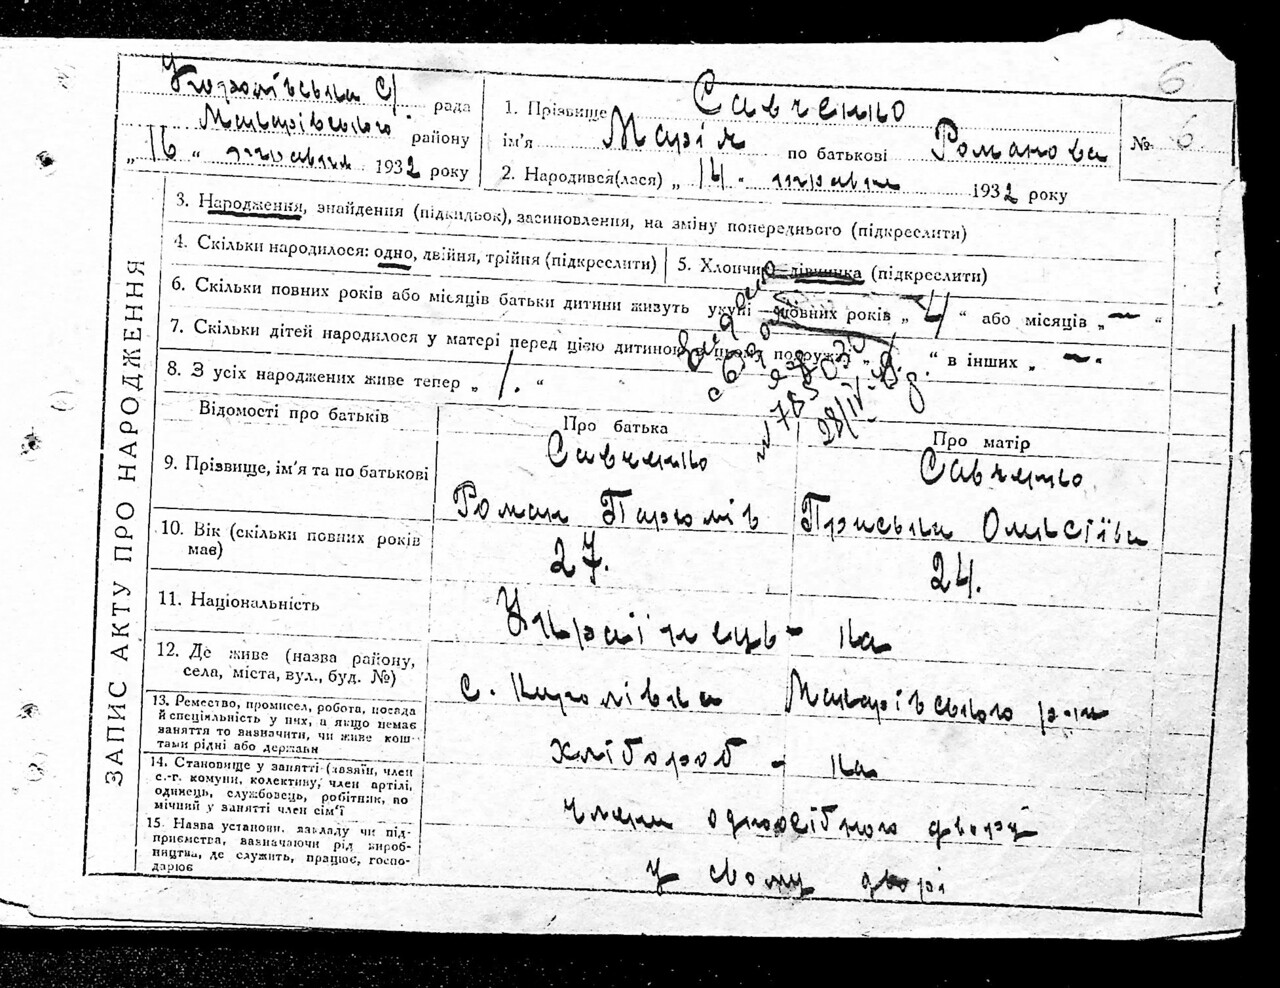 6
с/. рада
Макарівського району
„ 16 " травня 1932 року
1. Прізвище Савченко
ім'я Марія по батькові Романова
2. Народився(лася) „ 14 " травня 1932 року
№ 6
ЗАПИС АКТУ ПРО НАРОДЖЕННЯ
3. Народження, знайдення (підкидьок), засиновлення, на зміну попереднього (підкреслити)
4. Скільки народилося: одно, двійня, трійня (підкреслити)
5. Хлопчик—дівчинка (підкреслити)
6. Скільки повних років або місяців батьки дитини живуть укупі — повних років „ 4 " або місяців „ — "
7. Скільки дітей народилося у матері перед цією дитиною в цьому подружжі " в інших „ — "
8. З усіх народжених живе тепер „ 1. "
28/IV
Відомості про батьків
Про батька
Про матір
9. Прізвище, ім'я та по батькові
Савченко
Роман
Савченко
Приська
10. Вік (скільки повних років має)
27.
24.
11. Національність
Українець - ка
12. Де живе (назва району, села, міста, вул., буд. №)
с. Макарівського р-ну
13. Ремество, промисел, робота, посада й спеціяльність у них, а якщо немає заняття то визначити, чи живе коштами рідні або держави
хлібороб - ка
14. Становище у занятті (хазяїн, член с.-г. комуни, колективу, член артілі, одинець, службовець, робітник, помічний у занятті член сім'ї
члени одноосібного двору
15. Назва установи, закладу чи підприємства, вазначаючи рід виробництва, де служить, працює, господарює
у свому дворі